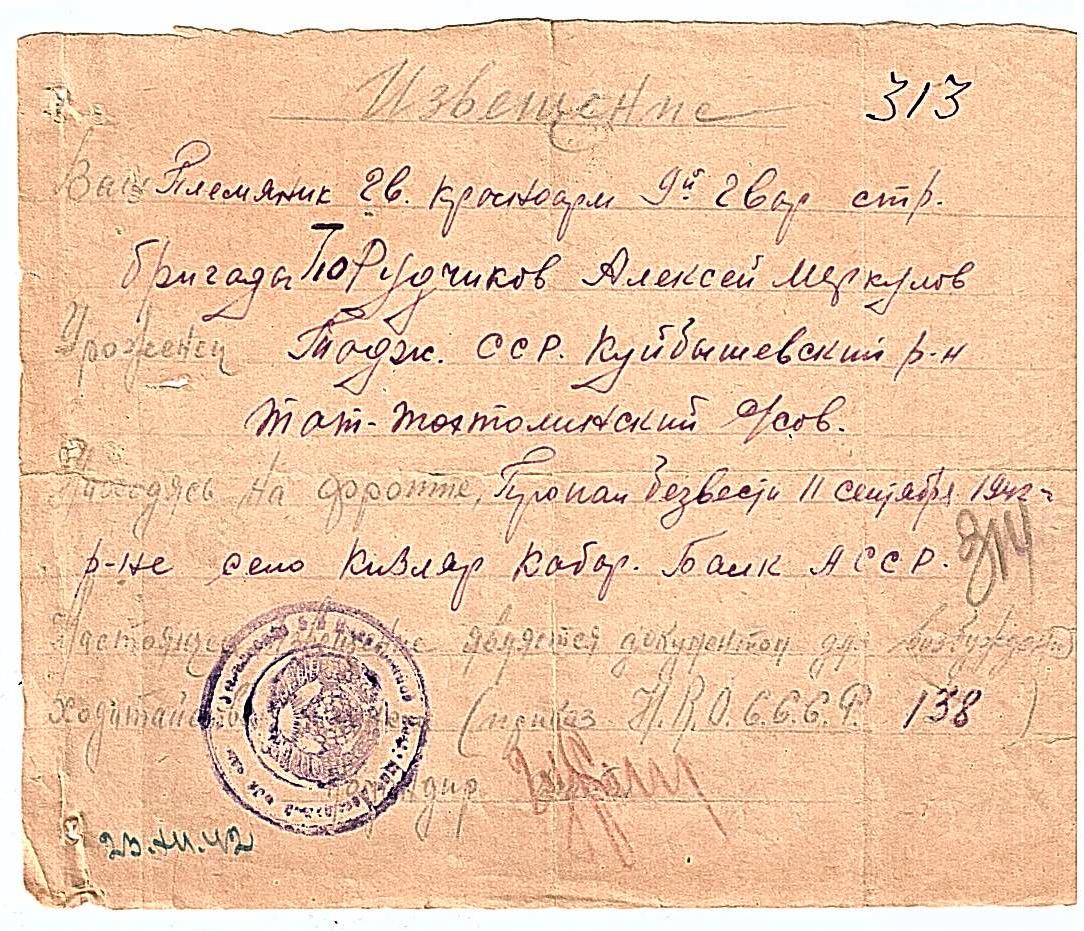 Извещение 313
Ваш Племяник гв. красноарм 9й гвар стр.
бригады Порудчиков Алексей Меркулов
Уроженец Тадж. ССР. Куйбышевский р-н
с/сов.
Находясь на фронте, Пропал безвести 11 сентября 1942 г
р-не село Кизляр Кабар. Балк АССР.
Настоящее извещение является документом для возбуждения
ходатайства (приказ Н.К.О. С.С.С.Р. 138)
Командир
23.XII.42